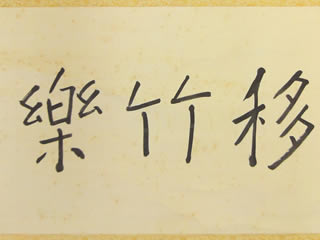 移竹樂